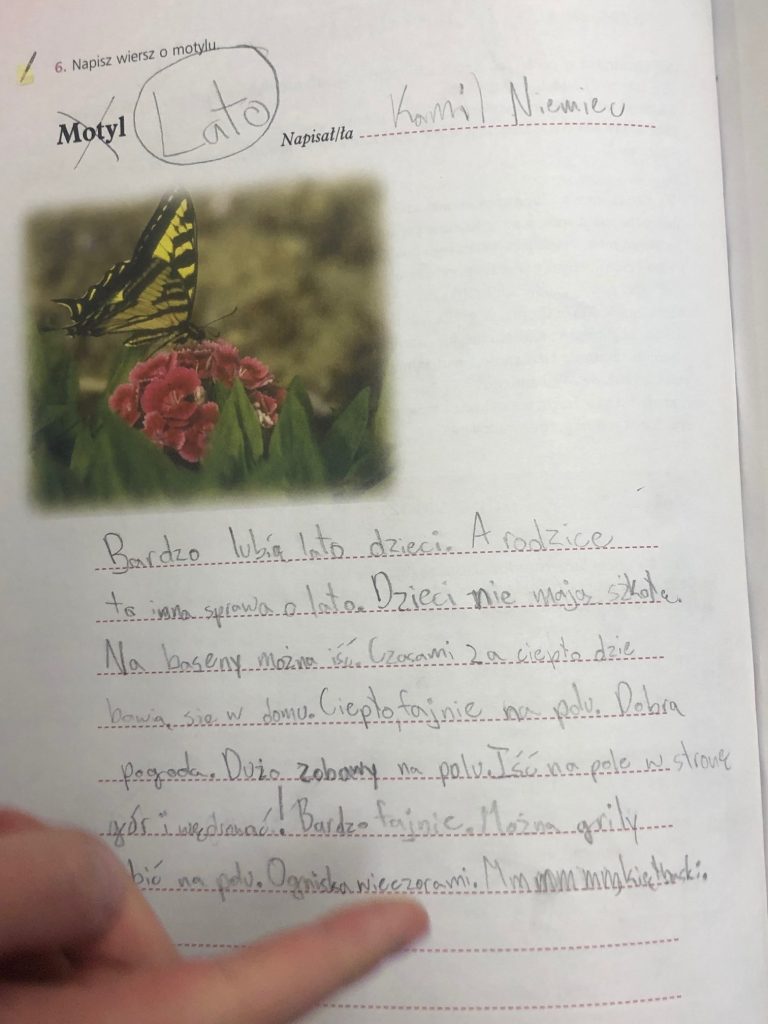 6. Napisz wiersz o motylu.
Motyl Lato Napisał/ła Kamil Niemiec
Bardzo lubią lato dzieci. A rodzice
to inna sprawa o lato. Dzieci nie mają szkołę.
Na baseny można iść. Czasami za ciepło dzie
bawią się w domu. Ciepło, fajnie na polu. Dobra
pogoda. Dużo zabawy na polu. Iść na pole w stronę
gór i wędrować! Bardzo fajnie. Można grily
bić na polu. Ogniska wieczorami. Mmmmm mm kiełbaski.